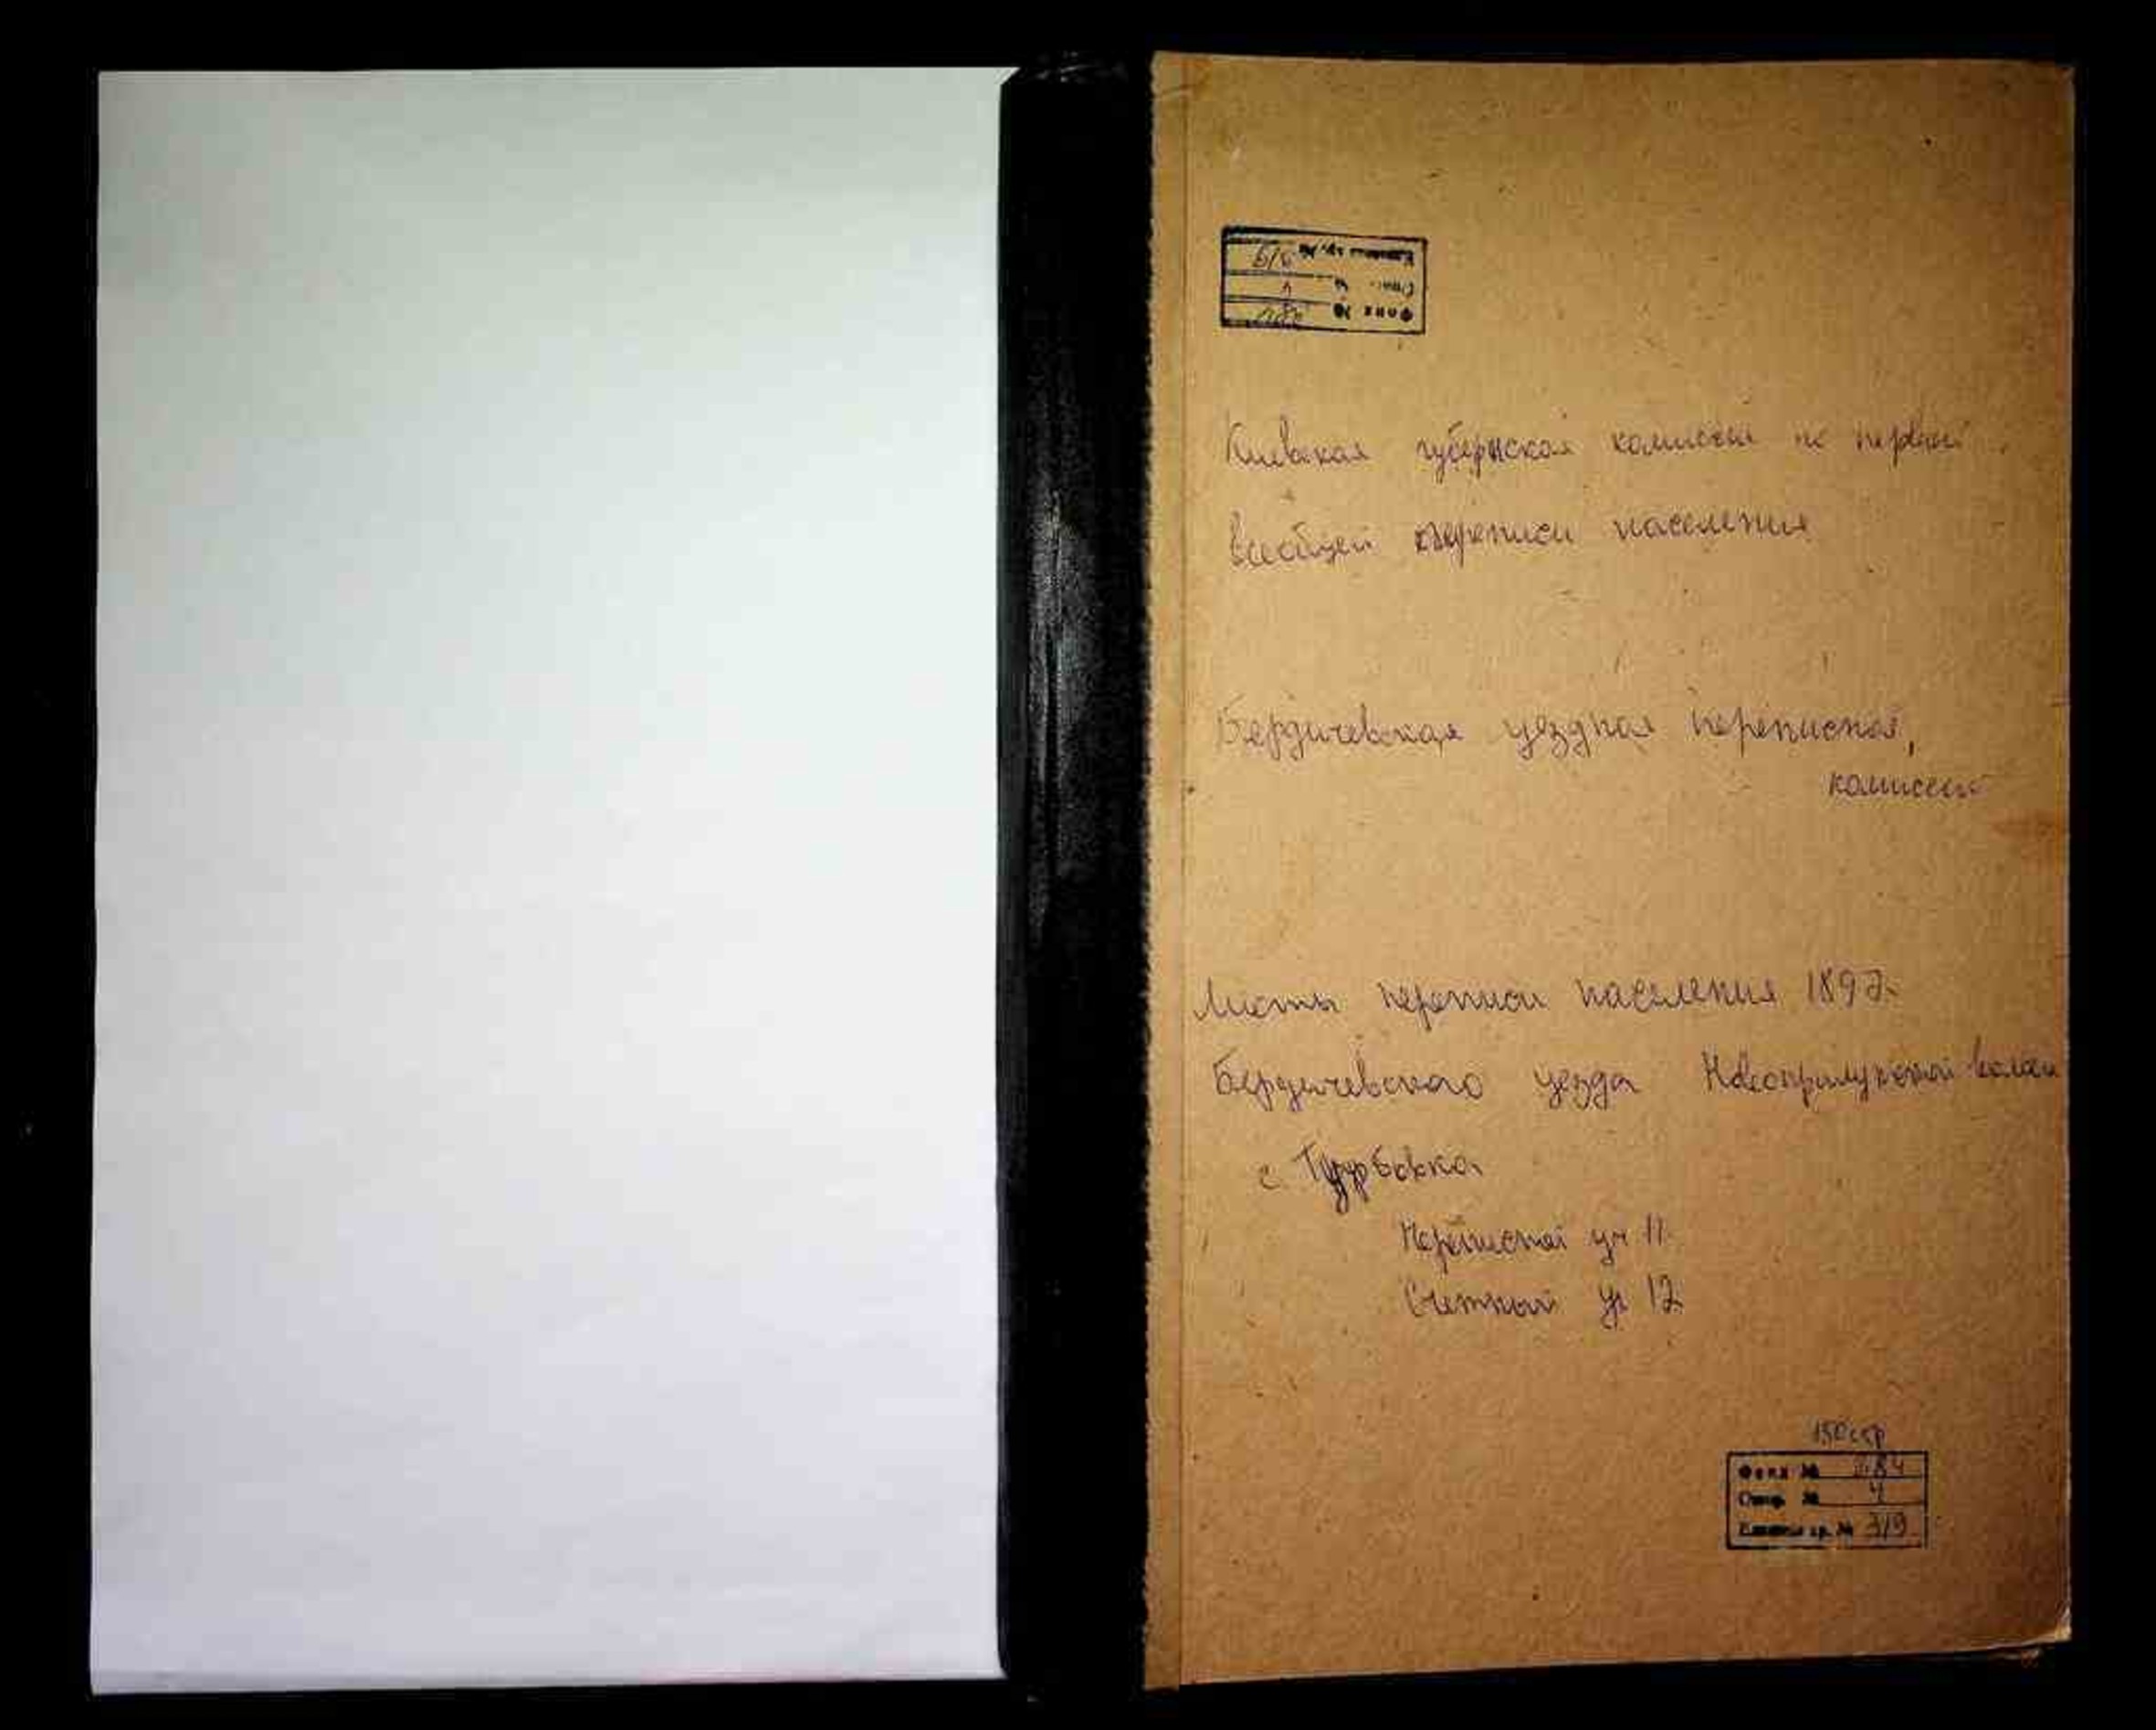 Фонд №
Опис. №
Единица хр. № 319
Киевская губернская комиссия по первой
всеобщей переписи населения
Бердичевская уездная переписная,
комиссия
Листы переписи населения 1897г.
Бердичевского уезда Новоприлукской волости
с. Турбовка
Переписной уч 11
Счетный уч 12
150 стр
Фонд № 384
Опис. № 4
Единица хр. № 319